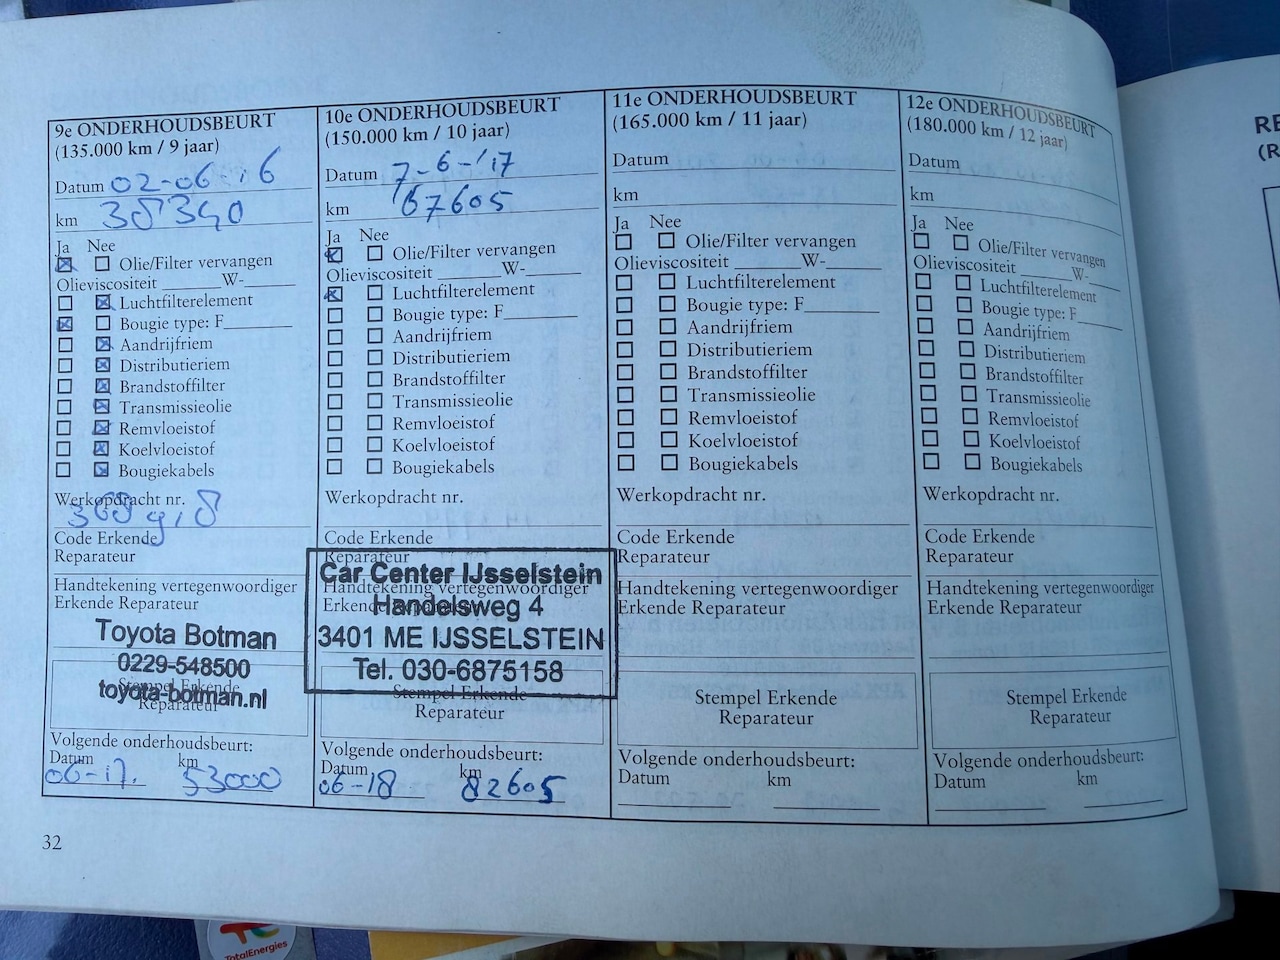 9e ONDERHOUDSBEURT
(135.000 km / 9 jaar)
Datum 02-06-16
km 38340
Ja Nee
Olie/Filter vervangen
Olieviscositeit ______W-______
Luchtfilterelement
Bougie type: F________
Aandrijfriem
Distributieriem
Brandstoffilter
Transmissieolie
Remvloeistof
Koelvloeistof
Bougiekabels
Werkopdracht nr.
Code Erkende
Reparateur
Handtekening vertegenwoordiger
Erkende Reparateur
Toyota Botman
0229-548500
toyota-botman.nl
Stempel Erkende
Reparateur
Volgende onderhoudsbeurt:
Datum km
06-17. 53000
10e ONDERHOUDSBEURT
(150.000 km / 10 jaar)
Datum 7-6-'17
km 67605
Ja Nee
Olie/Filter vervangen
Olieviscositeit ______W-______
Luchtfilterelement
Bougie type: F________
Aandrijfriem
Distributieriem
Brandstoffilter
Transmissieolie
Remvloeistof
Koelvloeistof
Bougiekabels
Werkopdracht nr.
Code Erkende
Reparateur
Handtekening vertegenwoordiger
Erkende Reparateur
Car Center IJsselstein
Handelsweg 4
3401 ME IJSSELSTEIN
Tel. 030-6875158
Stempel Erkende
Reparateur
Volgende onderhoudsbeurt:
Datum km
06-18 82605
11e ONDERHOUDSBEURT
(165.000 km / 11 jaar)
Datum
km
Ja Nee
Olie/Filter vervangen
Olieviscositeit ______W-______
Luchtfilterelement
Bougie type: F________
Aandrijfriem
Distributieriem
Brandstoffilter
Transmissieolie
Remvloeistof
Koelvloeistof
Bougiekabels
Werkopdracht nr.
Code Erkende
Reparateur
Handtekening vertegenwoordiger
Erkende Reparateur
Stempel Erkende
Reparateur
Volgende onderhoudsbeurt:
Datum km
12e ONDERHOUDSBEURT
(180.000 km / 12 jaar)
Datum
km
Ja Nee
Olie/Filter vervangen
Olieviscositeit ______W-______
Luchtfilterelement
Bougie type: F________
Aandrijfriem
Distributieriem
Brandstoffilter
Transmissieolie
Remvloeistof
Koelvloeistof
Bougiekabels
Werkopdracht nr.
Code Erkende
Reparateur
Handtekening vertegenwoordiger
Erkende Reparateur
Stempel Erkende
Reparateur
Volgende onderhoudsbeurt:
Datum km
32
TotalEnergies